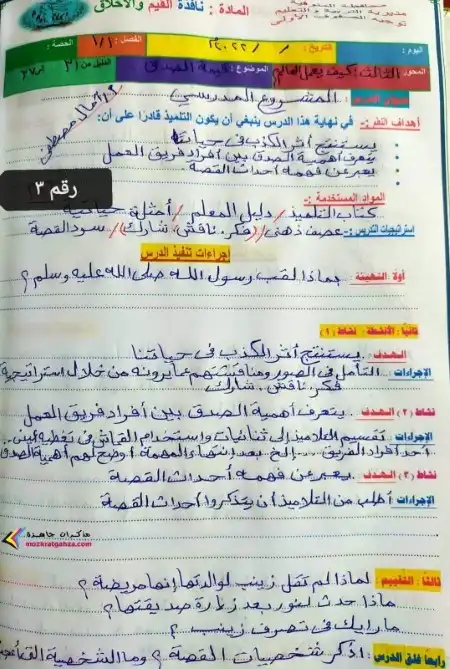 محافظة المنوفية
مديرية التربية والتعليم
توجيه الصفوف الأولى
المادة : نافذة القيم والأخلاق
اليوم :
التاريخ : / / ٢٠٢٢
الفصل : ١/١
الحصة :
المحور الثالث: كيف يعمل العالم
الموضوع : قيمة الصدق
الدليل من ٣١ إلى ٣٧
عنوان الدرس : المشروع المدرسي
أهداف الدرس :- في نهاية هذا الدرس ينبغي أن يكون التلميذ قادرًا على أن:
يستنتج أثر الكذب فى حياتنا
يتعرف أهمية الصدق بين أفراد فريق العمل
يعبر عن فهمه أحداث القصة
رقم ٣
المواد المستخدمة :-
كتاب التلميذ / دليل المعلم / أمثلة حياتية
استراتيجيات التدريس :- عصف ذهنى / (فكر، ناقش، شارك) / سرد القصة
إجراءات تنفيذ الدرس
أولًا: التهيئة : بماذا لقب رسول الله صلى الله عليه وسلم ؟
ثانيًا: الأنشطة : نشاط (١)
الهدف : يستنتج أثر الكذب فى حياتنا
الإجراءات : التأمل فى الصور ومناقشتهم عما يرونه من خلال استراتيجية
فكر، ناقش، شارك
نشاط (٢) الهدف : يتعرف أهمية الصدق بين أفراد فريق العمل
الإجراءات : تقسيم التلاميذ إلى ثنائيات واستخدام القماش فى تغطية أعين
أحد أفراد الفريق ... إلخ بعد إنتهاء المهمة أوضح لهم أهمية الصدق
نشاط (٣) الهدف : يعبر عن فهمه أحداث القصة
الإجراءات : أطلب من التلاميذ أن يتذكروا أحداث القصة
مذكرات جاهزة
mozkratgahza.com
ثالثًا: التقييم : لماذا لم تقل زينب لوالدتها إنها مريضة ؟
ماذا حدث لنور بعد زيارة صديقتها ؟
ما رايك فى تصرف زينب ؟
رابعًا غلق الدرس : اذكر شخصيات القصة ؟ وما الشخصية التى